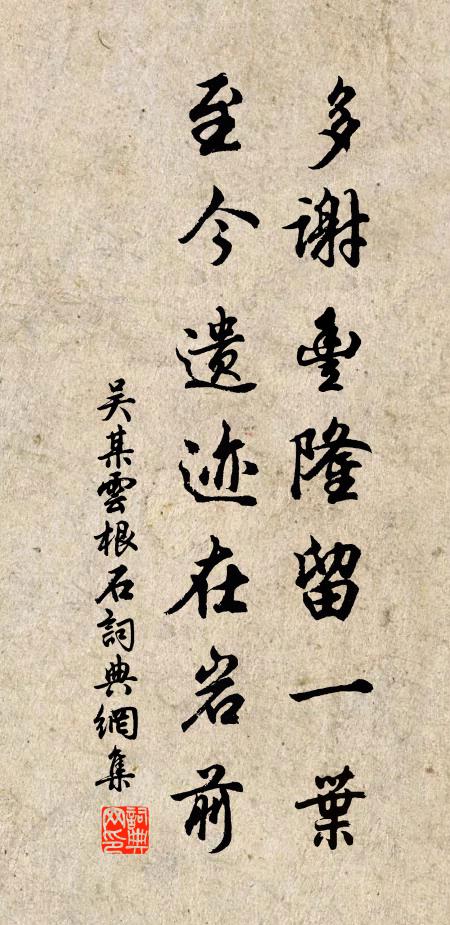 多谢豊隆留一葉
至今遗迹在岩前
吴某雲根石詞典網集
詞典網印